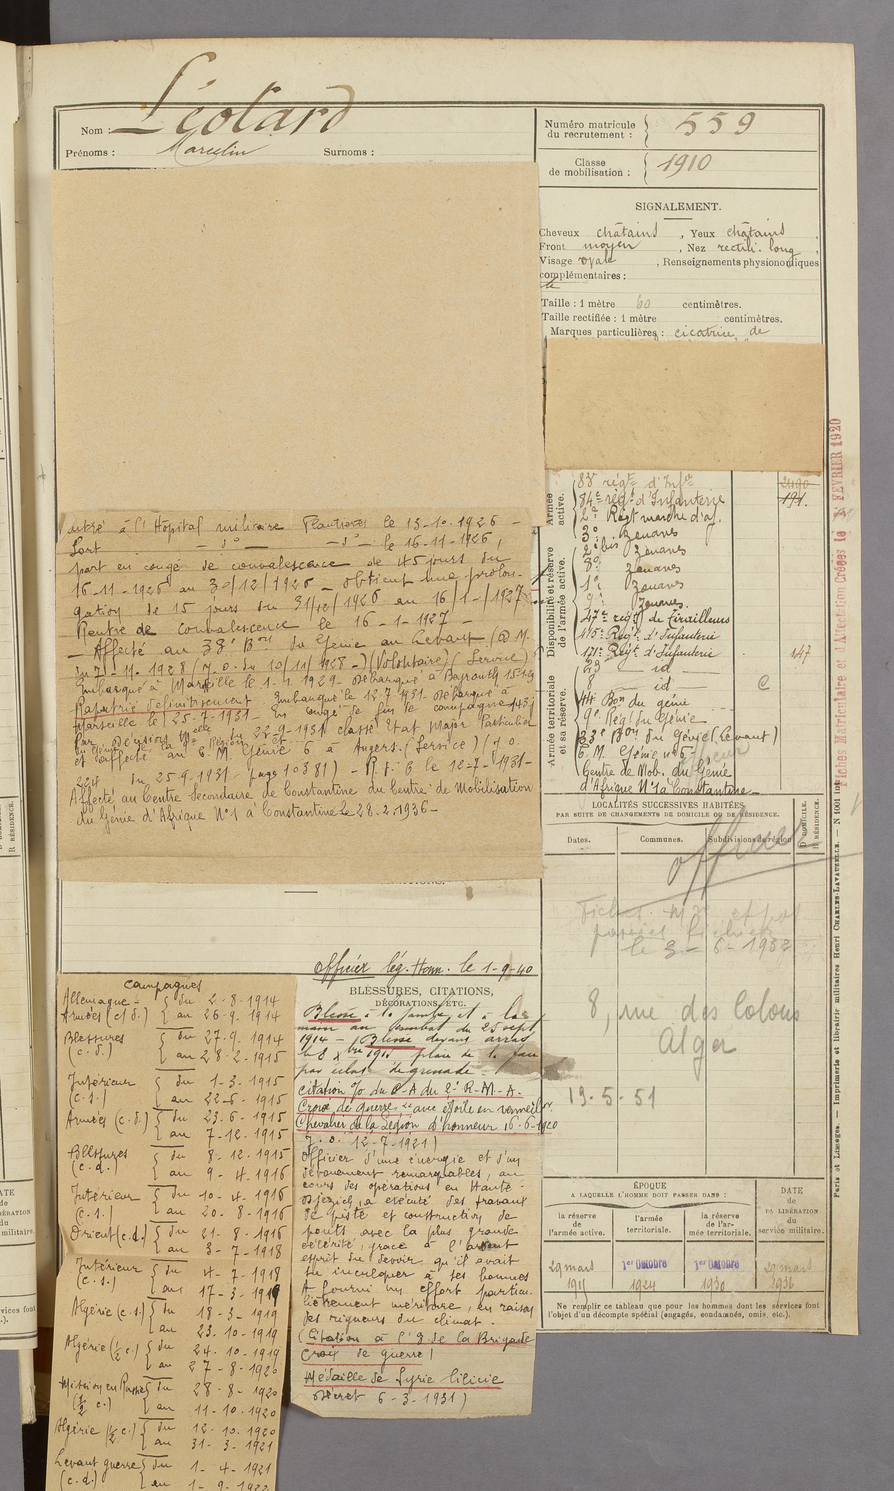 Nom : Léotard
Prénoms : Marcelin Surnoms :
Numéro matricule
du recrutement : 559
Classe
de mobilisation : 1910
SIGNALEMENT.
Cheveux châtains, Yeux châtains,
Front moyen, Nez rectil. long,
Visage ovale, Renseignements physionomiques
complémentaires :
Taille : 1 mètre 60 centimètres.
Taille rectifiée : 1 mètre centimètres.
Marques particulières : cicatrice de
entré à l'Hôpital militaire le 15-10-1926 -
Sort — d° — — d° — le 16-11-1926,
part en congé de convalescence de 45 jours du
16-11-1926 au 30/12/1926 - obtient une prolon-
gation de 15 jours du 31/12/1926 au 16/1/1927
Rentré de convalescence le 16-1-1927 -
- Affecté au 33e Bon du Génie au Levant (D.M.
du 7-11-1928 (J.O. du 10/11/1928 -) (Volontaire) (Service)
Embarqué à Marseille le 1-1-1929 - Débarqué à Beyrouth
Rapatrié définitivement Embarqué le 12-7-1931 Débarqué à
Marseille le 25-7-1931 - En congé de fin de campagne
Par décision Mlle du 22-9-1931 classé Etat Major Particulier
du Génie
et affecté au P. M. Génie 6 à Angers. (Service) (J.O.
224 du 25-9-1931 page 10381) - R.I.C le 12-7-1931-
Affecté au Centre Secondaire de Constantine du Centre de Mobilisation
du Génie d'Afrique N°1 à Constantine le 28.2.1936-
Armée
active.
Disponibilité et réserve
de l'armée active.
Armée territoriale
et sa réserve.
83e régt d'Infie
84e régt d'Infanterie 191.
2e Régt marche d'af.
3e Zouaves
2e bis Zouaves
3e Zouaves
1e Zouaves
9e Zouaves.
47e régt de Tirailleurs
415e Régt. d'Infanterie
171e Régt d'Infanterie 247
23 — id —
8 — id — C
44 Bon du génie
9e Régt du Génie
33e Bon du Génie (Levant)
P. M. Génie n°6
Centre de Mob. du Génie
d'Afrique N°1 à Constantine
LOCALITÉS SUCCESSIVES HABITÉES
PAR SUITE DE CHANGEMENTS DE DOMICILE OU DE RÉSIDENCE.
Dates. Communes. Subdivisions de région D. DOMICILE. R. RÉSIDENCE.
officier
le 3-6-1932
8, rue des Colons
Alger
19-5-51
ÉPOQUE
A LAQUELLE L'HOMME DOIT PASSER DANS :
DATE
de
LA LIBÉRATION
du
service militaire.
la réserve
de
l'armée active.
l'armée
territoriale.
la réserve
de l'ar-
mée territoriale.
29 mars
1911
1er Octobre
1924
1er Octobre
1930
29 mars
1936
Ne remplir ce tableau que pour les hommes dont les services font
l'objet d'un décompte spécial (engagés, condamnés, omis, etc.).
Officier lég. Honn. le 1-9-40
BLESSURES, CITATIONS,
DÉCORATIONS, ETC.
Blessé à la jambe et à la
main au combat du 25 sept
1914 - Blessé devant arras
le 8 Xbre 1915 plaie de la face
par éclat de grenade.
Citation % du C.A du 2e R-M-A-
Croix de guerre avec étoile en vermeil
Chevalier de la Légion d'honneur 16-6-1920
J.O. 12-7-1921)
Officier d'une énergie et d'un
dévouement remarquables, au
cours des opérations en Haute-
Djezireh, a exécuté des travaux
de piste et construction de
ponts avec la plus grande
célérité, grace à l'ardent
esprit du devoir qu'il avait
su inculquer à ses hommes
A fourni un effort particu-
lièrement méritoire, en raison
des rigueurs du climat.
(Citation à l'O de la Brigade
Croix de guerre)
Médaille de Syrie Cilicie
Décret 6-3-1931)
Campagnes
Allemagne - { du 2-8-1914
Armées (c.d.) { au 26-9-1914
Blessures { du 27-9-1914
(c.d.) { au 28-2-1915
Intérieur { du 1-3-1915
(c.s.) { au 22-6-1915
Armées (c.d.) { du 23-6-1915
{ au 7-12-1915
Blessures { du 8-12-1915
(c.d.) { au 9-4-1916
Intérieur { du 10-4-1916
(c.s.) { au 20-8-1916
Orient (c.d.) { du 21-8-1916
{ au 3-7-1918
Intérieur { du 4-7-1918
(c.s.) { au 17-3-1919
Algérie (c.s.) { du 18-3-1919
{ au 23-10-1919
Algérie (½ c.) { du 24-10-1919
{ au 27-8-1920
Mission en Russie { du 28-8-1920
(½ c.) { au 11-10-1920
Algérie (½ c.) { du 12-10-1920
{ au 31-3-1921
Levant guerre { du 1-4-1921
(c.d.) { au 1-9-1922
Fiches Matriculaire et d'Affectation Créées le FÉVRIER 1920
Paris et Limoges. — Imprimerie et librairie militaires Henri CHARLES-LAVAUZELLE. — N 1001